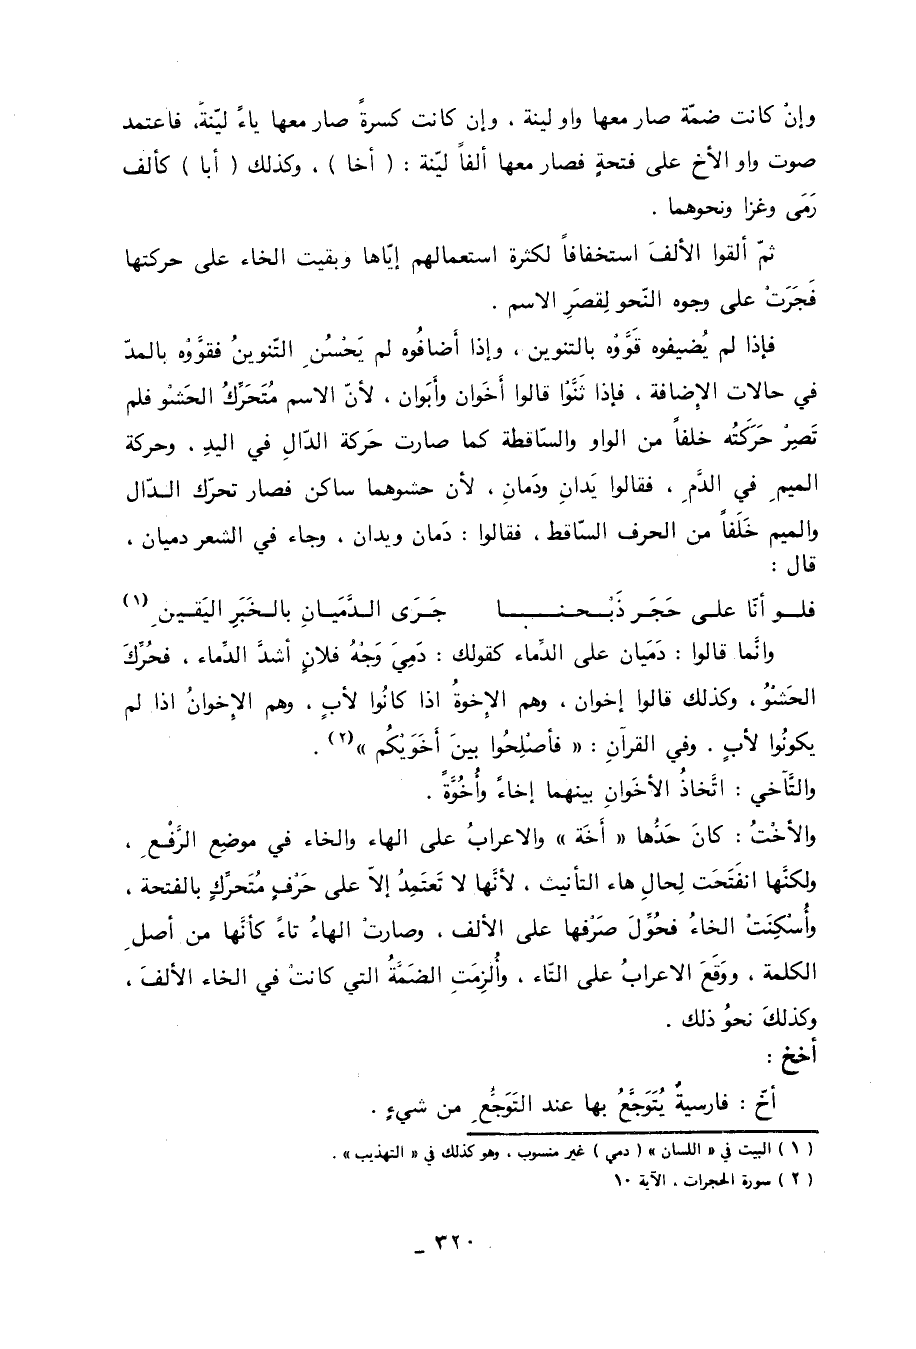 وإنْ كانت ضمّة صار معها واو لينة ، وإن كانت كسرةً صار معها ياءً ليّنةً، فاعتمد
صوت واو الأخ على فتحةٍ فصار معها ألفاً ليّنة : ( أخا ) ، وكذلك ( أبا ) كألف
رَمَى وغزا ونحوهما .
ثمّ ألقوا الألفَ استخفافاً لكثرة استعمالهم إيّاها وبقيت الخاء على حركتها
فَجَرَتْ على وجوه النّحو لِقصَرِ الاسم .
فإذا لم يُضيفوه قَوَّوْه بالتنوين ، وإذا أضافُوه لم يَحْسُنِ التّنوينُ فقوَّوْه بالمدّ
في حالات الإضافة ، فإذا ثَنَّوْا قالوا أخَوان وأبَوان ، لأنّ الاسم مُتَحَرِّكُ الحَشْو فلم
تَصِرْ حَرَكَتُه خلفاً من الواو والسّاقطة كما صارت حَركة الدّالِ في اليدِ . وحركة
الميمِ في الدَّمِ ، فقالوا يَدانِ ودَمانِ ، لأن حشوهما ساكن فصار تحرّك الـدّال
والميم خَلَفاً من الحرف السّاقط ، فقالوا : دَمان ويدان ، وجاء في الشعر دميان ،
قال :
فلــو أنّا علــى حَجَـر ذُبْـحنـــــا جَـرَى الـدَّمَيَـانِ بالـخَبَرِ اليَقـينِ (١)
وانَّما قالوا : دَمَيان على الدِّماء كقولك : دَمِيَ وَجْهُ فلانٍ أشدَّ الدِّماء ، فحُرِّكَ
الحَشْوُ ، وكذلك قالوا إخوان ، وهم الإخوةُ اذا كانُوا لأبٍ ، وهم الإخوانُ اذا لم
يكونُوا لأبٍ . وفي القرآنِ : « فأصْلِحُوا بينَ أخَوَيْكُم »(٢) .
والتَّآخي : اتَّخاذُ الأخَوانِ بينهما إخاءً وأُخُوَّةً .
والأخْتُ : كانَ حَدُّها « أخَة » والاعرابُ على الهاء والخاء في موضِع الرَّفْعِ ،
ولكنَّها انفَتَحَت لِحالِ هاء التأنيث ، لأنَّها لا تَعتَمِدُ إلاّ على حَرْفٍ مُتَحرِّكٍ بالفتحة ،
وأُسْكِنَتْ الخاءُ فحُوِّلَ صَرْفها على الألف ، وصارتْ الهاءُ تاءً كأنَّها من أصلِ
الكلمة ، ووَقَعَ الاعرابُ على التّاء ، وأُلزِمَتِ الضَمَّةُ التي كانتْ في الخاء الألفَ ،
وكذلكَ نحوُ ذلك .
أخخ :
أخّ : فارسيةٌ يُتَوَجَّعُ بها عند التَوَجُّعِ من شيءٍ .
( ١ ) البيت في « اللسان » ( دمي ) غير منسوب ، وهو كذلك في « التهذيب » .
( ٢ ) سورة الحجرات ، الآية ١٠
٣٢٠ _